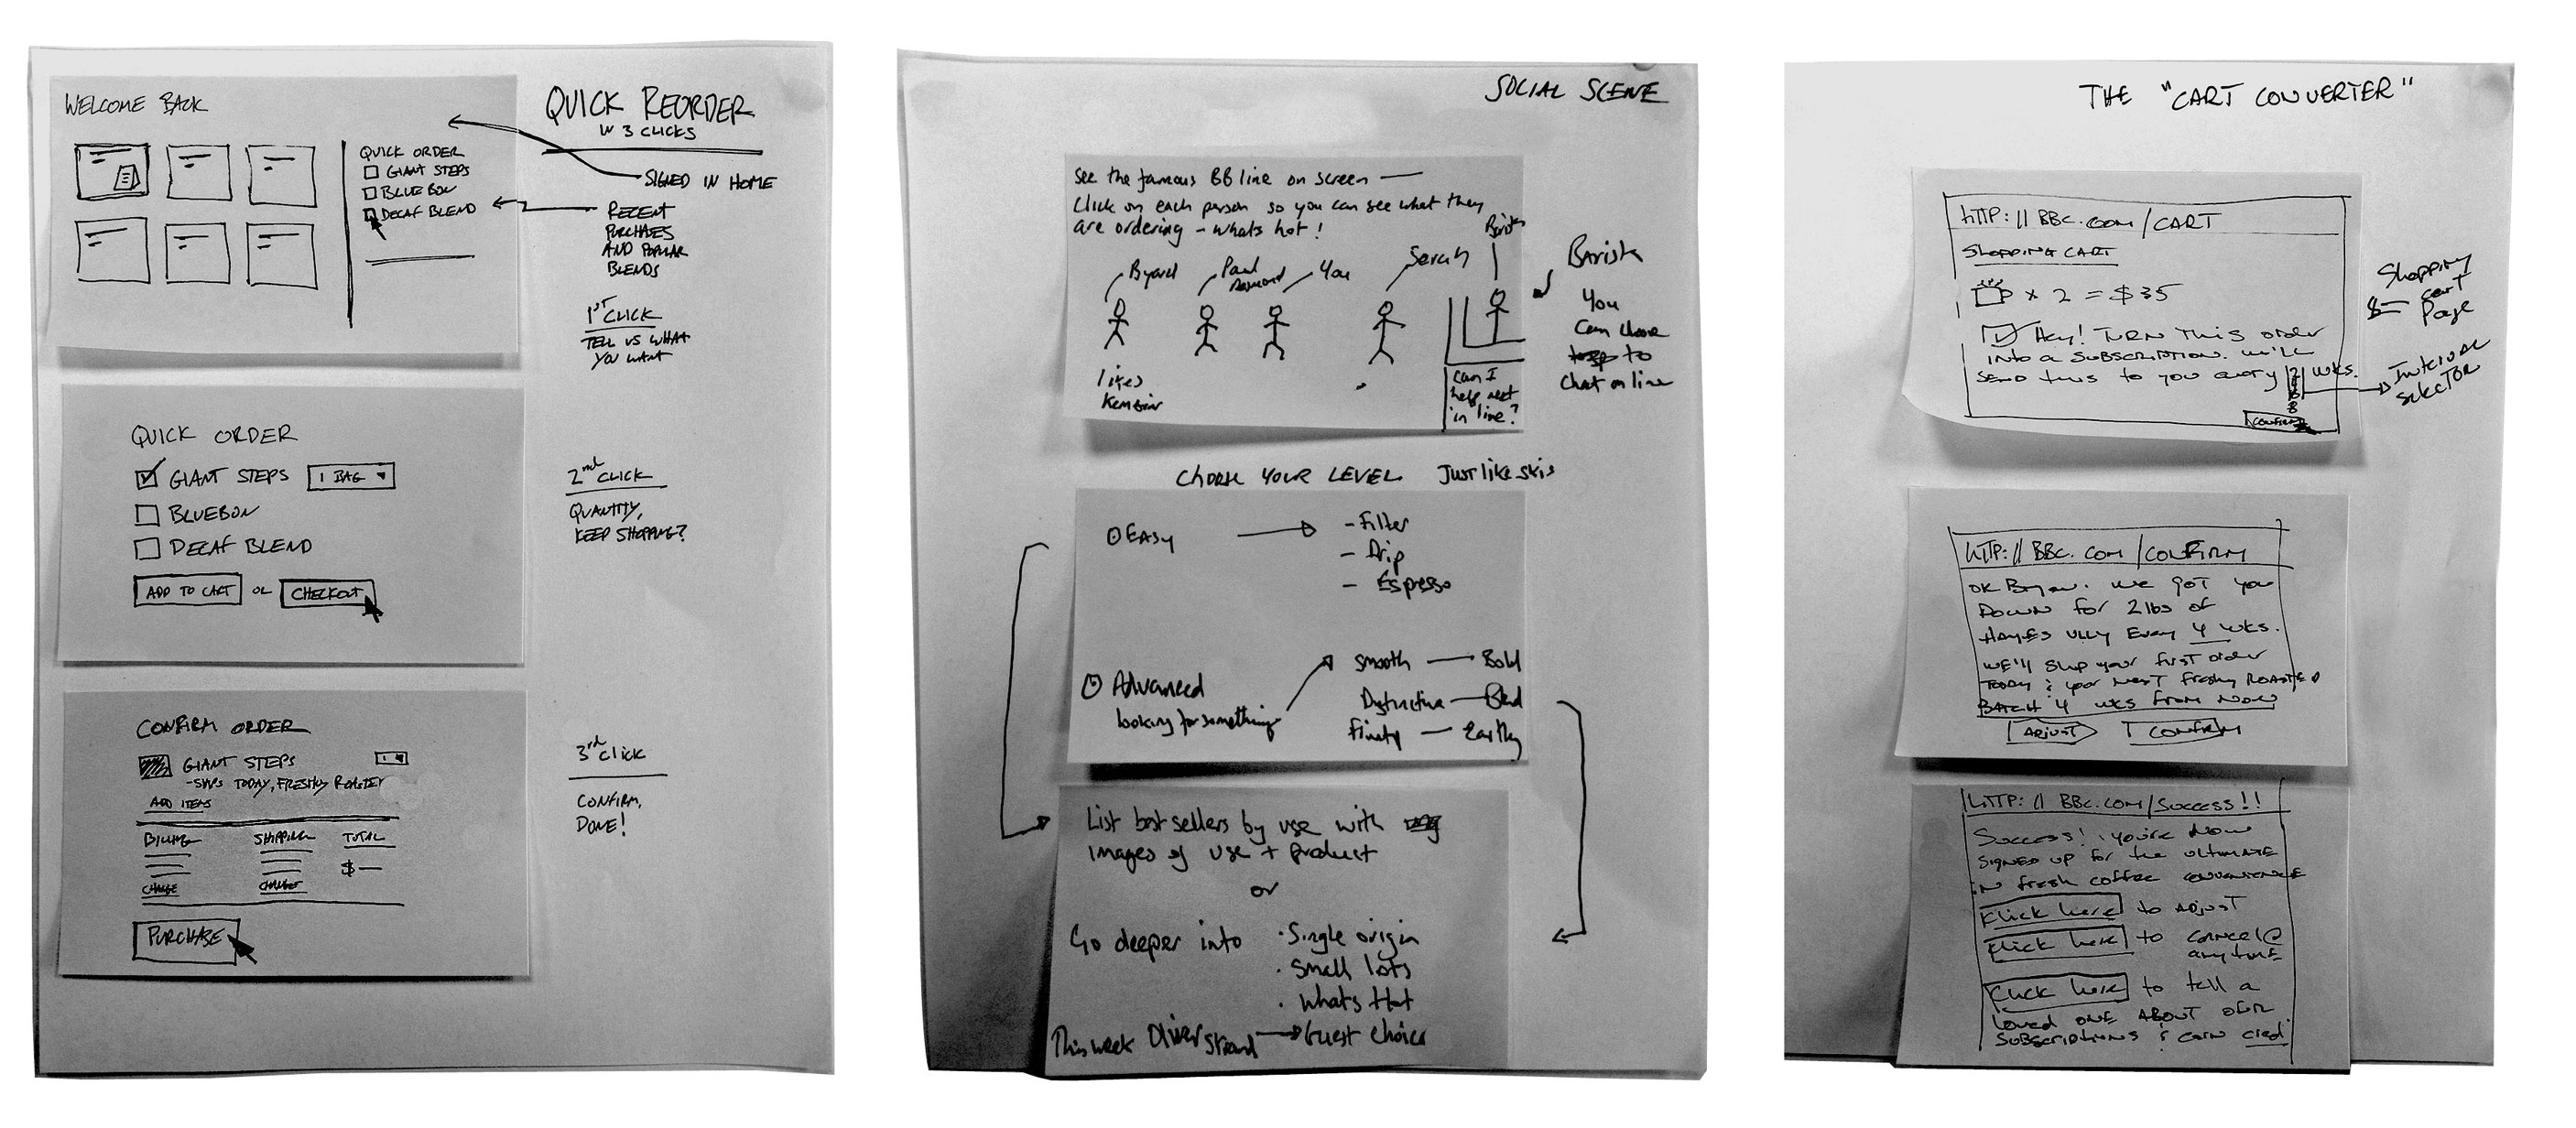 WELCOME BACK
QUICK ORDER
GIANT STEPS
BLUEBON
DECAF BLEND
QUICK REORDER
W 3 CLICKS
SIGNED IN HOME
RECENT
PURCHASES
AND POPULAR
BLENDS
1ST CLICK
TELL US WHAT
YOU WANT
QUICK ORDER
GIANT STEPS 1 BAG
BLUEBON
DECAF BLEND
ADD TO CART OR CHECKOUT
2nd CLICK
QUANTITY,
KEEP SHOPPING?
CONFIRM ORDER
GIANT STEPS 1
-SHIPS TODAY, FRESHLY ROASTED
ADD ITEMS
BILLING SHIPPING TOTAL
$—
CHANGE CHANGE
PURCHASE
3rd Click
CONFIRM,
DONE!
SOCIAL SCENE
See the famous BB line on screen —
Click on each person so you can see what they
are ordering - whats hot!
Barista
Byard Paul You Sarah
likes
Can I
help next
in line?
Barista
You
Can choose
to
Chat on line
CHOOSE YOUR LEVEL Just like skis
EASY
- Filter
- Drip
- Espresso
Advanced
looking for something
Smooth — Bold
Distinctive — Blend
Fruity — Earthy
List best sellers by use with
images of use + product
or
Go deeper into
· Single origin
· Small lots
· Whats Hot
This week Oliver Strand → Guest Choice
THE "CART CONVERTER"
HTTP://BBC.COM/CART
SHOPPING CART
x 2 = $35
Hey! TURN THIS order
INTO A SUBSCRIPTION. We'll
SEND this to you every 2 wks.
8
CONFIRM
Shopping
cart
Page
Interval
Selector
HTTP://BBC.COM/CONFIRM
OK Bryan. We got you
DOWN for 2 lbs of
HAYES VLLY Every 4 wks.
WE'll ship your first order
TODAY & your next freshly ROASTED
BATCH 4 wks from NOW
ADJUST CONFIRM
HTTP://BBC.COM/SUCCESS!!
Success! you're NOW
SIGNED UP for the ULTIMATE
IN fresh coffee CONVENIENCE
Click here to ADJUST
Click here to CANCEL @
anytime
Click here to tell a
loved ONE ABOUT OUR
SUBSCRIPTIONS & earn cred